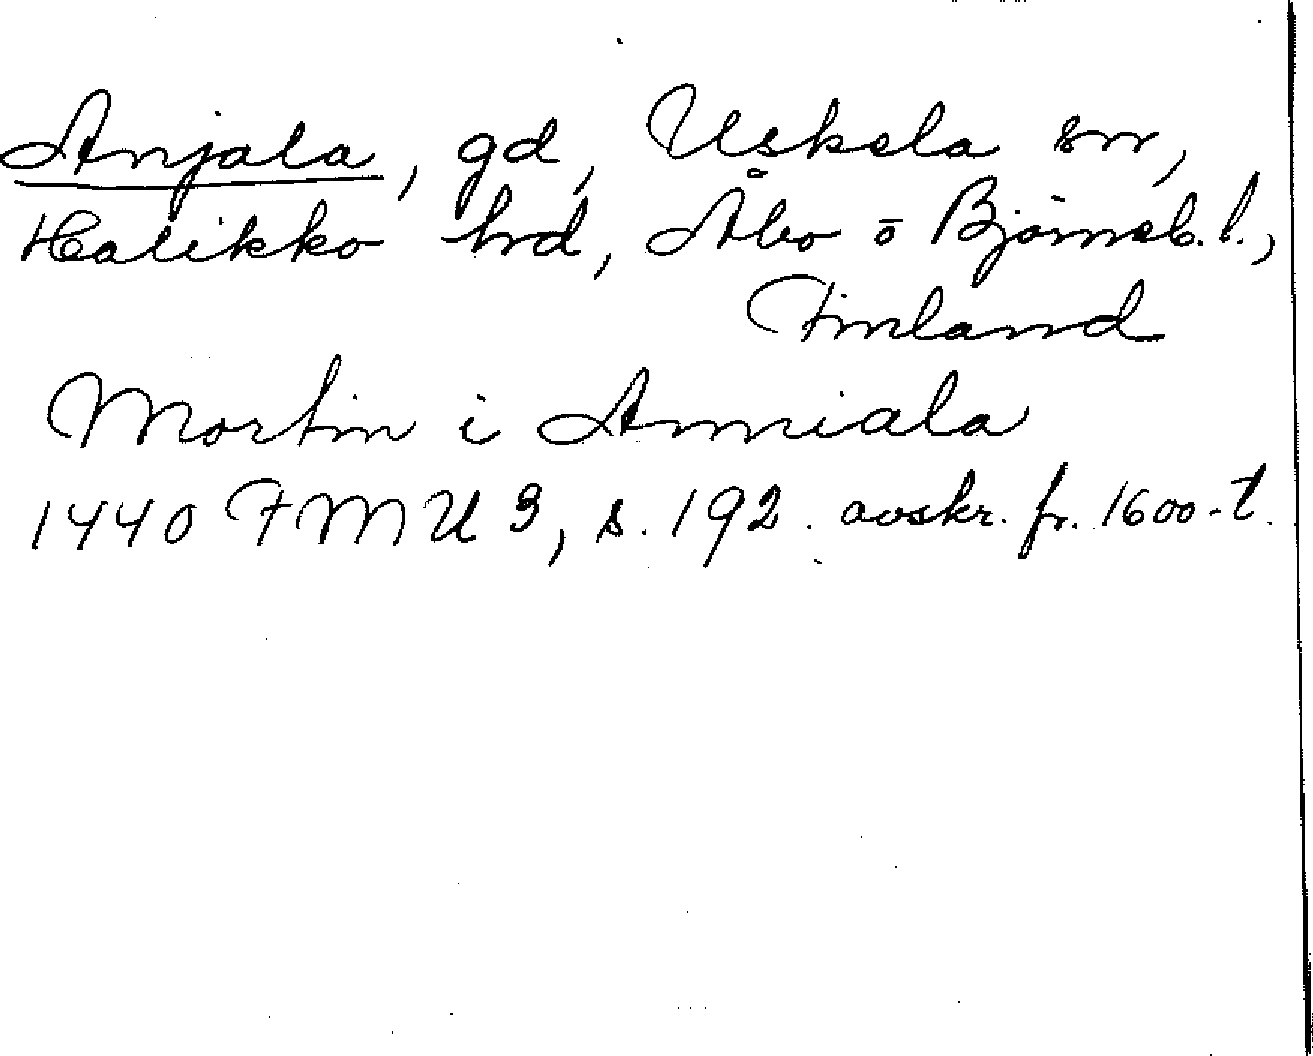 Anjala, gd, Uskela sn,
Halikko hrd, Åbo o Björneb. l.,
Finland
Mortin i Anniala
1440 FMU 3, s. 192. avskr. fr. 1600-t.